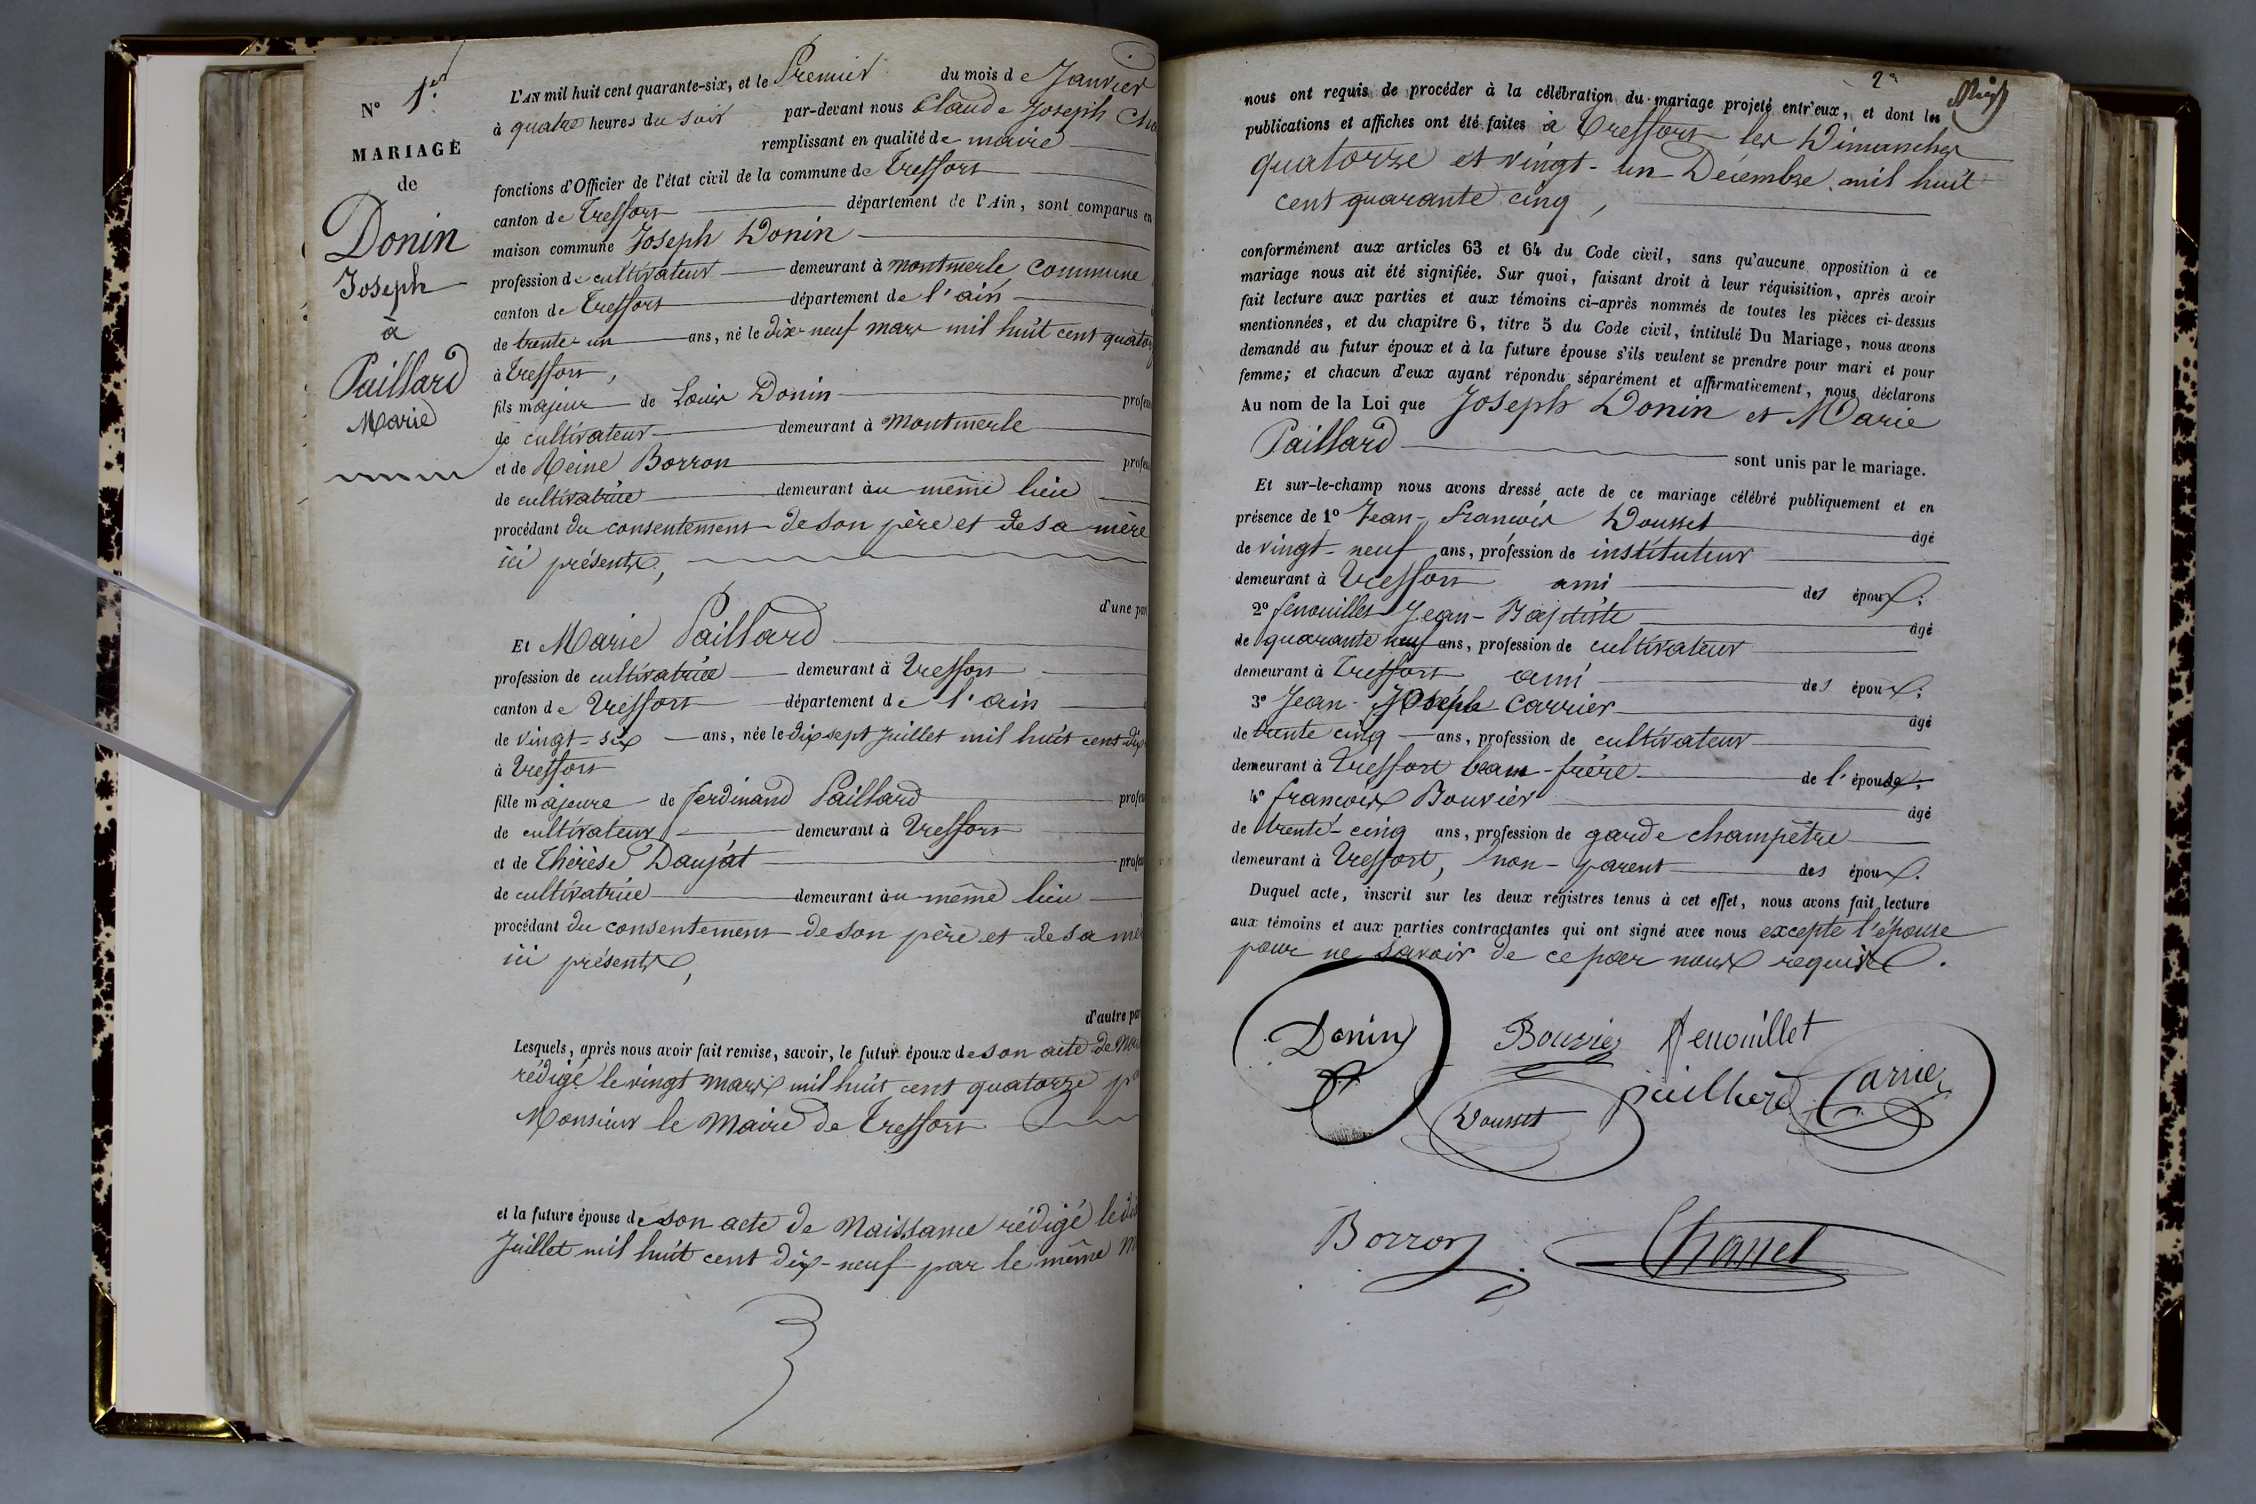 N° 1er
MARIAGE
de
Donin
Joseph
à
Paillard
Marie
L'AN mil huit cent quarante-six, et le Premier du mois de Janvier
à quatre heures du soir par-devant nous Claude Joseph
remplissant en qualité de maire
fonctions d'Officier de l'état civil de la commune de Treffort
canton de Treffort département de l'Ain, sont comparus en
maison commune Joseph Donin
profession de cultivateur demeurant à montmerle, commune
canton de Treffort département de l'ain
de trente-un ans, né le dix-neuf mars mil huit cent
à Treffort,
fils majeur de Louis Donin
de cultivateur demeurant à montmerle
et de Reine Borron
de cultivatrice demeurant au même lieu
procédant du consentement de son père et de sa mère
ici présents,
d'une
Et Marie Paillard
profession de cultivatrice demeurant à Treffort
canton de Treffort département de l'ain
de vingt-six ans, née le dix sept Juillet mil huit cent dix
à Treffort
fille majeure de ferdinand Paillard
de cultivateur demeurant à Treffort
et de Thérèse Daujat
de cultivatrice demeurant au même lieu
procédant du consentement de son père et de sa
ici présents,
d'autre
Lesquels, après nous avoir fait remise, savoir, le futur époux de son acte de
rédigé le vingt mars mil huit cent quatorze
Monsieur le Maire de Treffort
et la future épouse de son acte de Naissance rédigé le
Juillet mil huit cent dix-neuf par le même
2
nous ont requis de procéder à la célébration du mariage projeté entr'eux, et dont les
publications et affiches ont été faites à Treffort les Dimanches
quatorze et vingt-un Décembre mil huit
cent quarante cinq,
conformément aux articles 63 et 64 du Code civil, sans qu'aucune opposition à ce
mariage nous ait été signifiée. Sur quoi, faisant droit à leur réquisition, après avoir
fait lecture aux parties et aux témoins ci-après nommés de toutes les pièces ci-dessus
mentionnées, et du chapitre 6, titre 5 du Code civil, intitulé Du Mariage, nous avons
demandé au futur époux et à la future épouse s'ils veulent se prendre pour mari et pour
femme; et chacun d'eux ayant répondu séparément et affirmativement, nous déclarons
Au nom de la Loi que Joseph Donin et Marie
Paillard sont unis par le mariage.
Et sur-le-champ nous avons dressé acte de ce mariage célébré publiquement et en
présence de 1° Jean-françois Dousset âgé
de vingt-neuf ans, profession de instituteur
demeurant à Treffort ami des époux.
2° fenouillet Jean-Baptiste âgé
de quarante neuf ans, profession de cultivateur
demeurant à Treffort ami des époux.
3° Jean-Joseph Carrier âgé
de trente cinq ans, profession de cultivateur
demeurant à Treffort beau-frère de l'épouse.
4° françois Bouvier âgé
de trente-cinq ans, profession de garde champêtre
demeurant à Treffort, non-parent des époux.
Duquel acte, inscrit sur les deux registres tenus à cet effet, nous avons fait lecture
aux témoins et aux parties contractantes qui ont signé avec nous excepté l'épouse
pour ne savoir de ce par nous requise.
Donin Bouvier fenouillet
Dousset pailliard Carrier
Borron Chanel